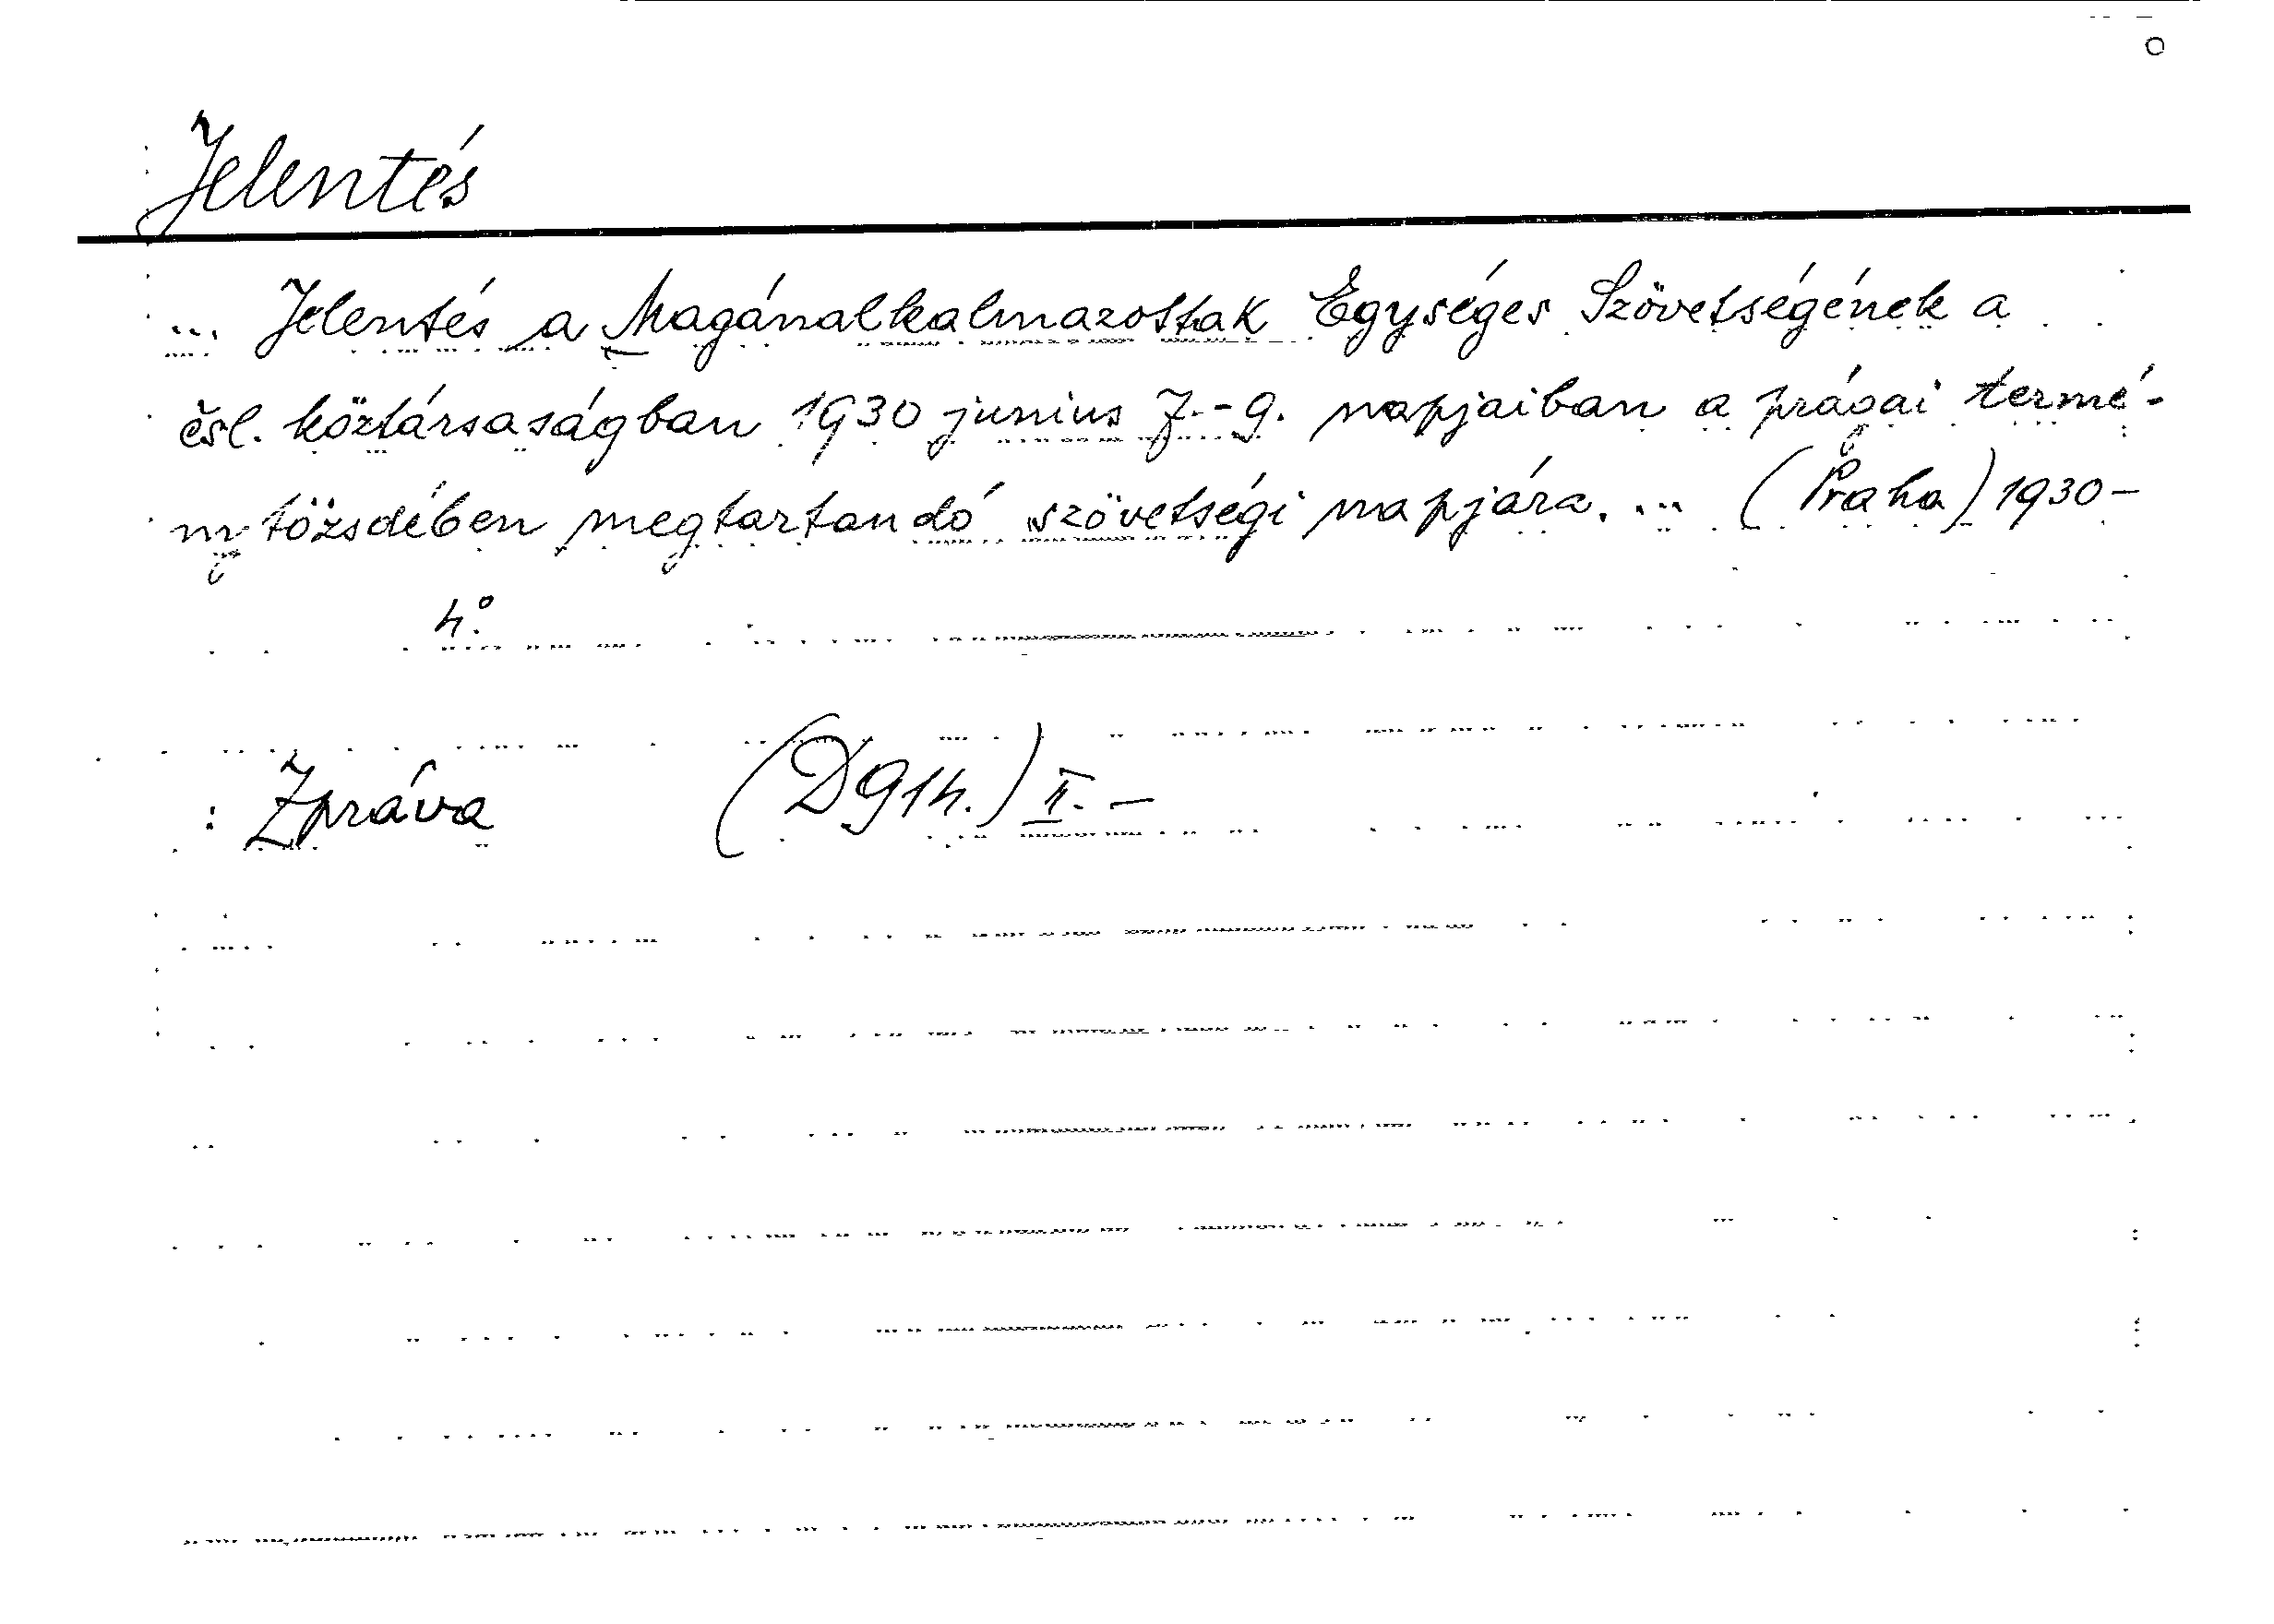 Jelentés
... Jelentés a Magánalkalmazottak Egységes Szövetségének a
čsl. köztársaságban 1930 junius 7.-9. napjaiban a prágai termé-
ny tözsdében megtartandó szövetségi napjára. ... (Praha) 1930-
4.°
Zpráva (D914.) II. -